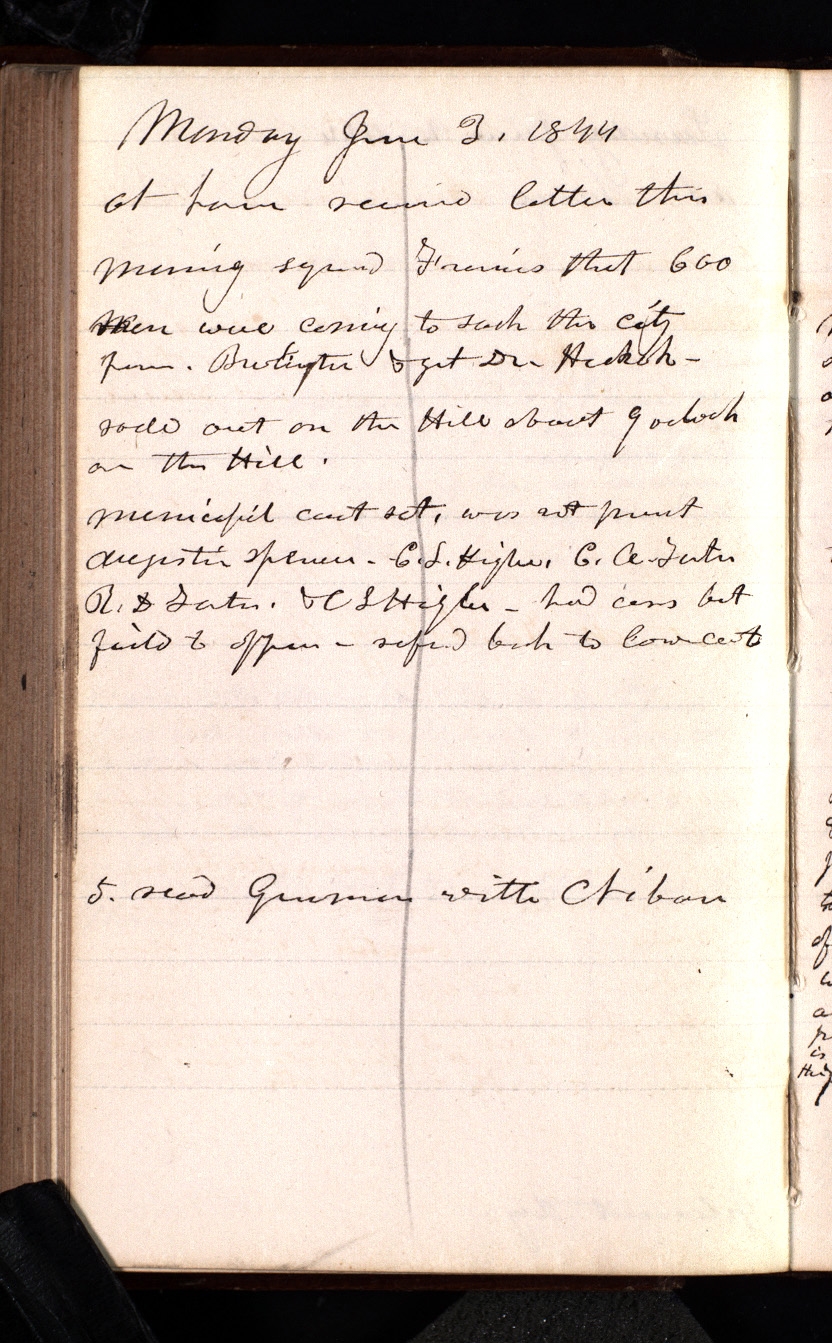 Monday June 3. 1844
at home received letter this
morning signed Francis that 600
men were coming to sack this city
from. Burlington & get Dr. Hickok -
rode out on the Hill about 9 oclock
on the Hill.
municipal court sat, was not present
Augustin Spencer - C.L. Higbee. C. A. Foster
R. D Foster. & C L Higbee - had cases but
faild to appear - refered back to lower court
5. read German with Neibaur